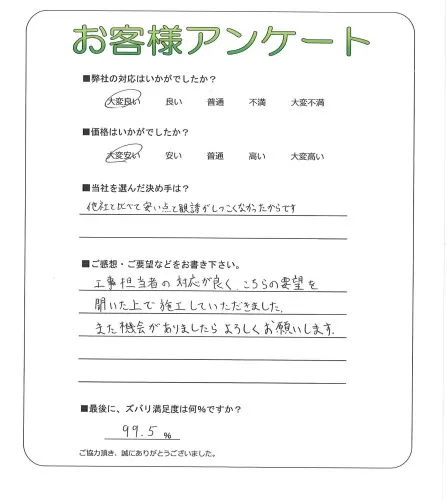 お客様アンケート
■弊社の対応はいかがでしたか？
大変良い 良い 普通 不満 大変不満
■価格はいかがでしたか？
大変安い 安い 普通 高い 大変高い
■当社を選んだ決め手は？
他社と比べて安い点と勧誘がしつこくなかったからです
■ご感想・ご要望などをお書き下さい。
工事担当者の対応が良く、こちらの要望を
聞いた上で施工していただきました。
また機会がありましたらよろしくお願いします。
■最後に、ズバリ満足度は何%ですか？
99.5 %
ご協力頂き、誠にありがとうございました。